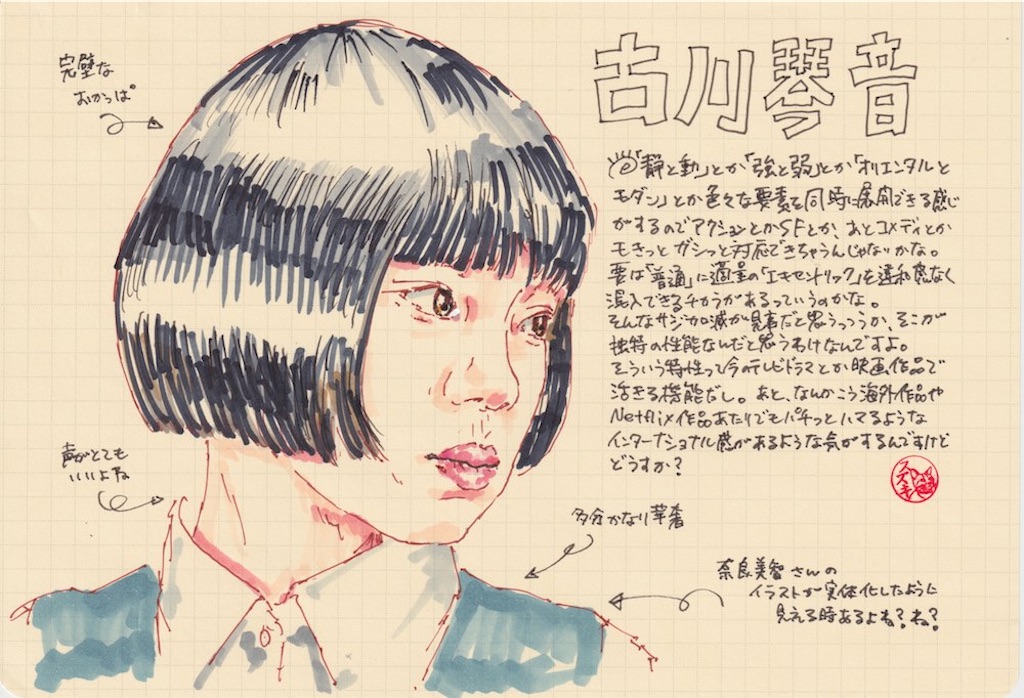 古川琴音
完璧な
おかっぱ
「静と動」とか「強と弱」とか「オリエンタルと
モダン」とか色々な要素を同時に展開できる感じ
がするのでアクションとかSFとか、あとコメディとか
モきっとガシっと対応できちゃうんじゃないかな。
要は「普通」に適量の「エキセントリック」を違和感なく
混入できるチカラがあるっていうのかな。
そんなサジ加減が見事だと思うっつうか、そこが
独特の性能なんだと思うわけなんですよ。
そういう特性って今のテレビドラマとか映画作品で
活きる機能だし。あと、なんかこう海外作品や
Netflix作品あたりでもパチっとハマるような
インターナショナル感があるような気がするんですけど
どうすか?
スズキ
声がとても
いいよね
多分かなり華奢
奈良美智さんの
イラストが実体化したように
見える時あるよね?ね?